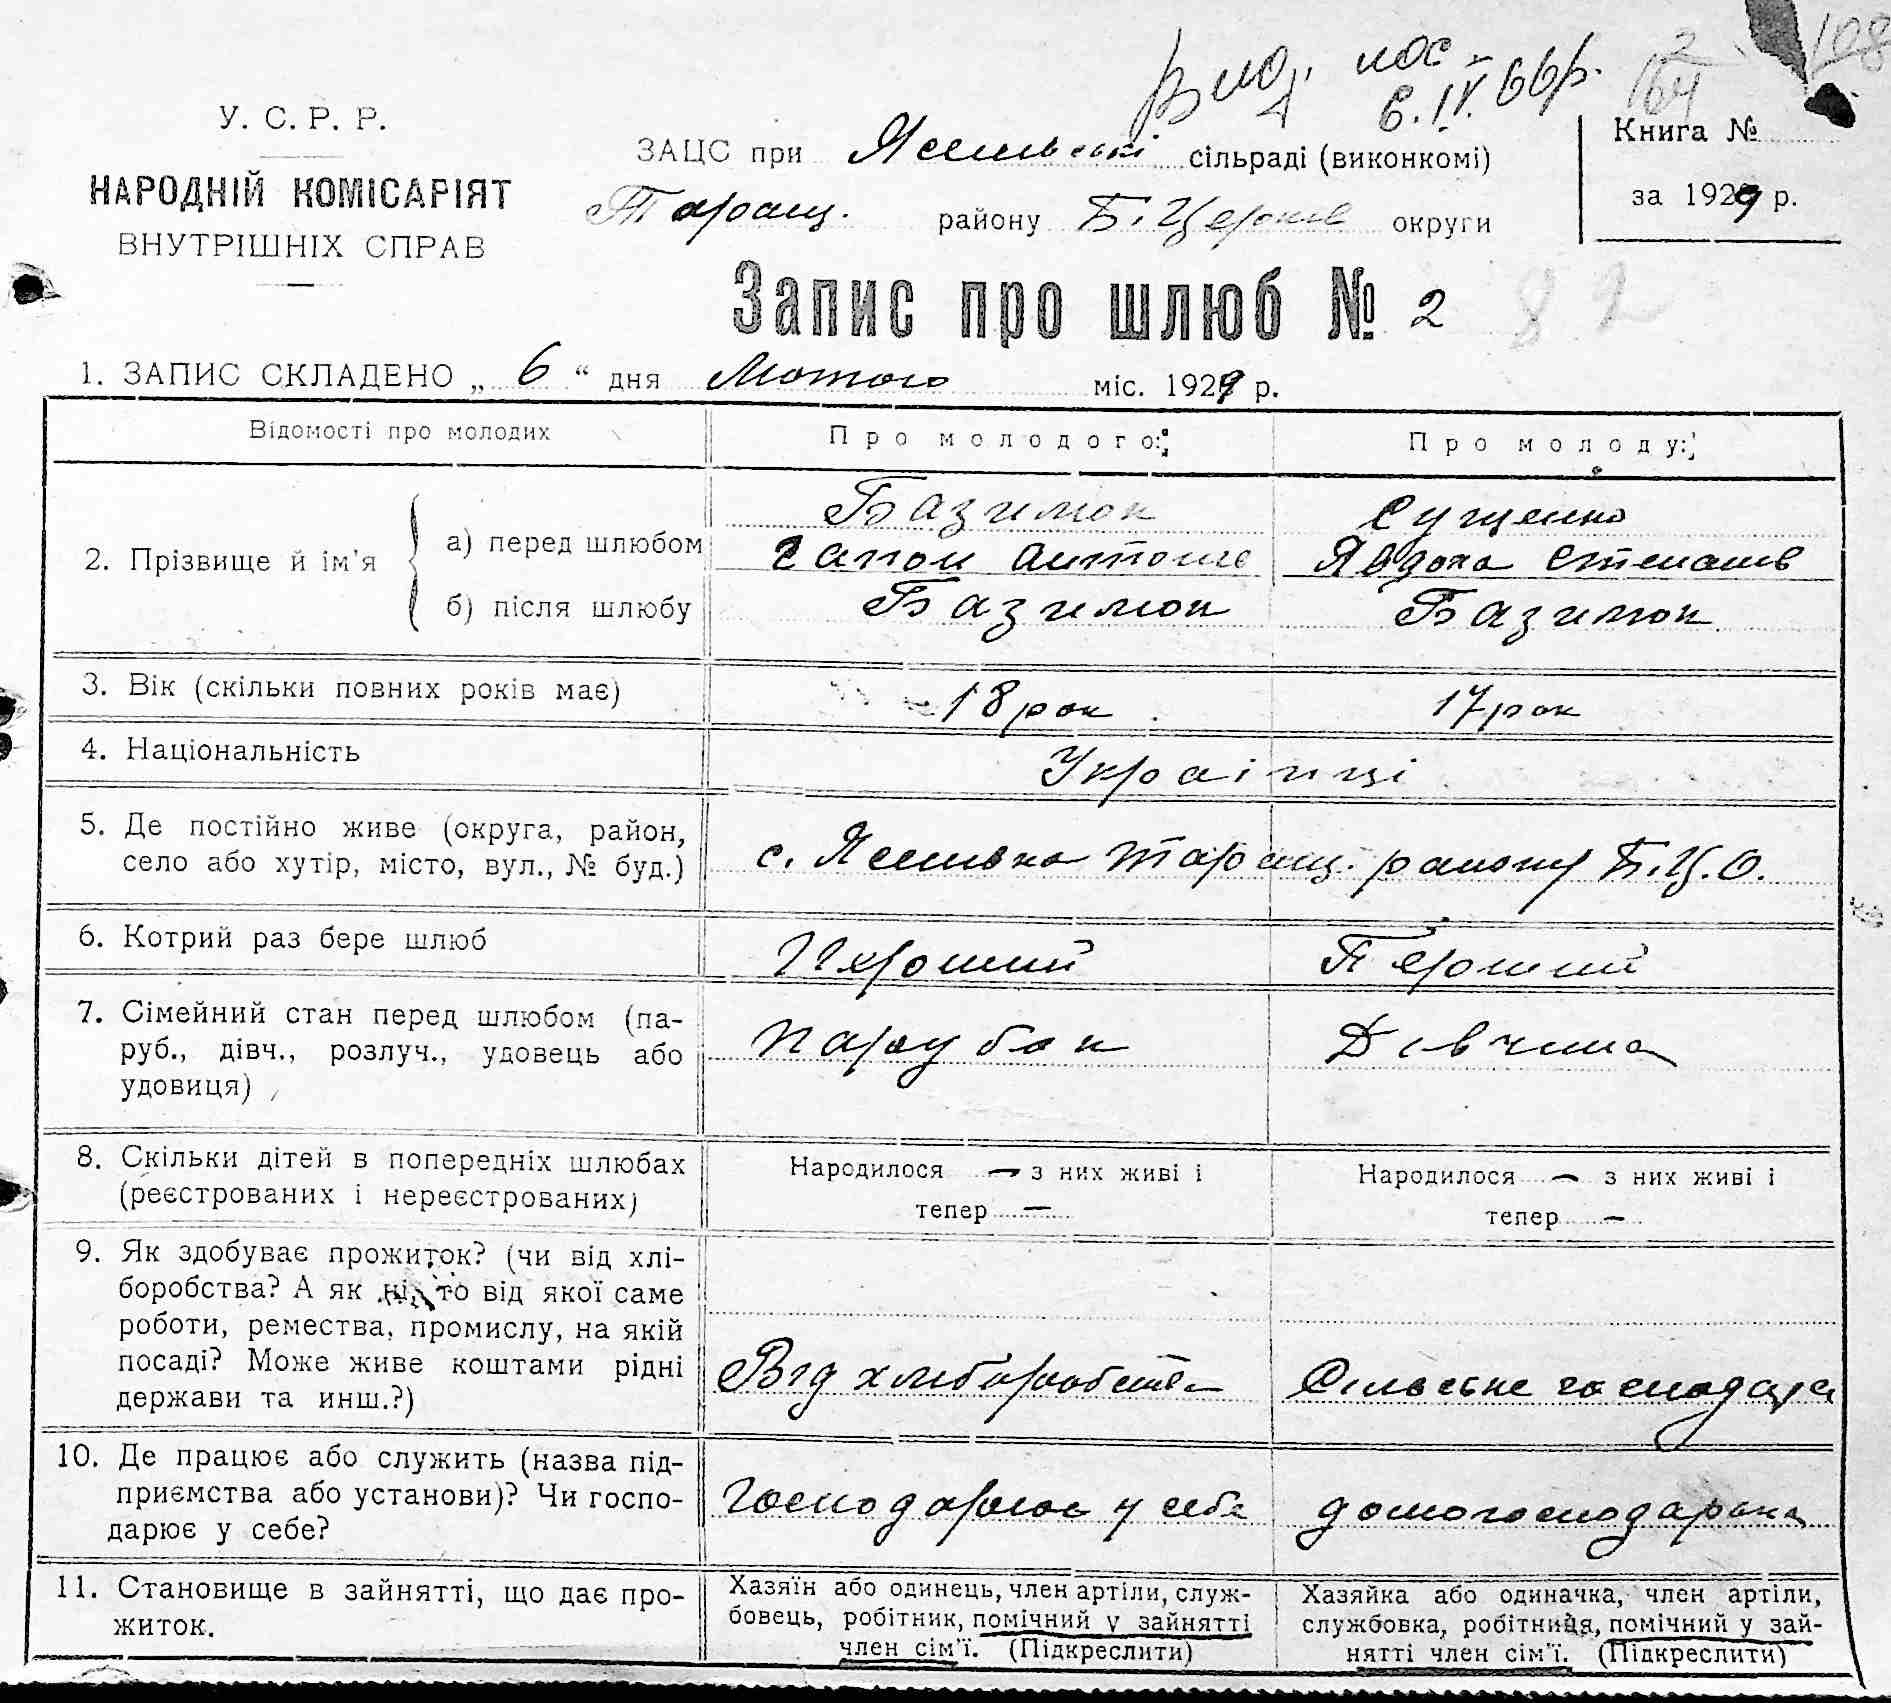 Вид. пос
6.IV.66р.
2
64
108
У. С. Р. Р.
НАРОДНІЙ КОМІСАРІЯТ
ВНУТРІШНІХ СПРАВ
ЗАЦС при сільраді (виконкомі)
Таращ. району Б. Церків округи
Книга №
за 1929 р.
Запис про шлюб № 2
82
1. ЗАПИС СКЛАДЕНО „ 6 “ дня Лютого міс. 1929 р.
Відомості про молодих
Про молодого:
Про молоду:
2. Прізвище й ім'я
а) перед шлюбом
б) після шлюбу
Базилюк
Гапон Антонів
Базилюк
Сущенко
Явдоха Степанів
Базилюк
3. Вік (скільки повних років має)
18 рок
17 рок
4. Національність
Українці
5. Де постійно живе (округа, район,
село або хутір, місто, вул., № буд.)
с. Таращ. району Б.Ц.О.
6. Котрий раз бере шлюб
Перший
Перший
7. Сімейний стан перед шлюбом (па-
руб., дівч., розлуч., удовець або
удовиця)
Парубок
Дівчина
8. Скільки дітей в попередніх шлюбах
(реєстрованих і нереєстрованих)
Народилося — з них живі і
тепер —
Народилося — з них живі і
тепер —
9. Як здобуває прожиток? (чи від хлі-
боробства? А як ні, то від якої саме
роботи, ремества, промислу, на якій
посаді? Може живе коштами рідні
держави та инш.?)
Від хліборобства
Сільське господар
10. Де працює або служить (назва під-
приємства або установи)? Чи госпо-
дарює у себе?
Господарює у себе
домогосподарка
11. Становище в зайнятті, що дає про-
житок.
Хазяїн або одинець, член артіли, служ-
бовець, робітник, помічний у зайнятті
член сім'ї. (Підкреслити)
Хазяйка або одиначка, член артіли,
службовка, робітниця, помічний у зай-
нятті член сім'ї. (Підкреслити)